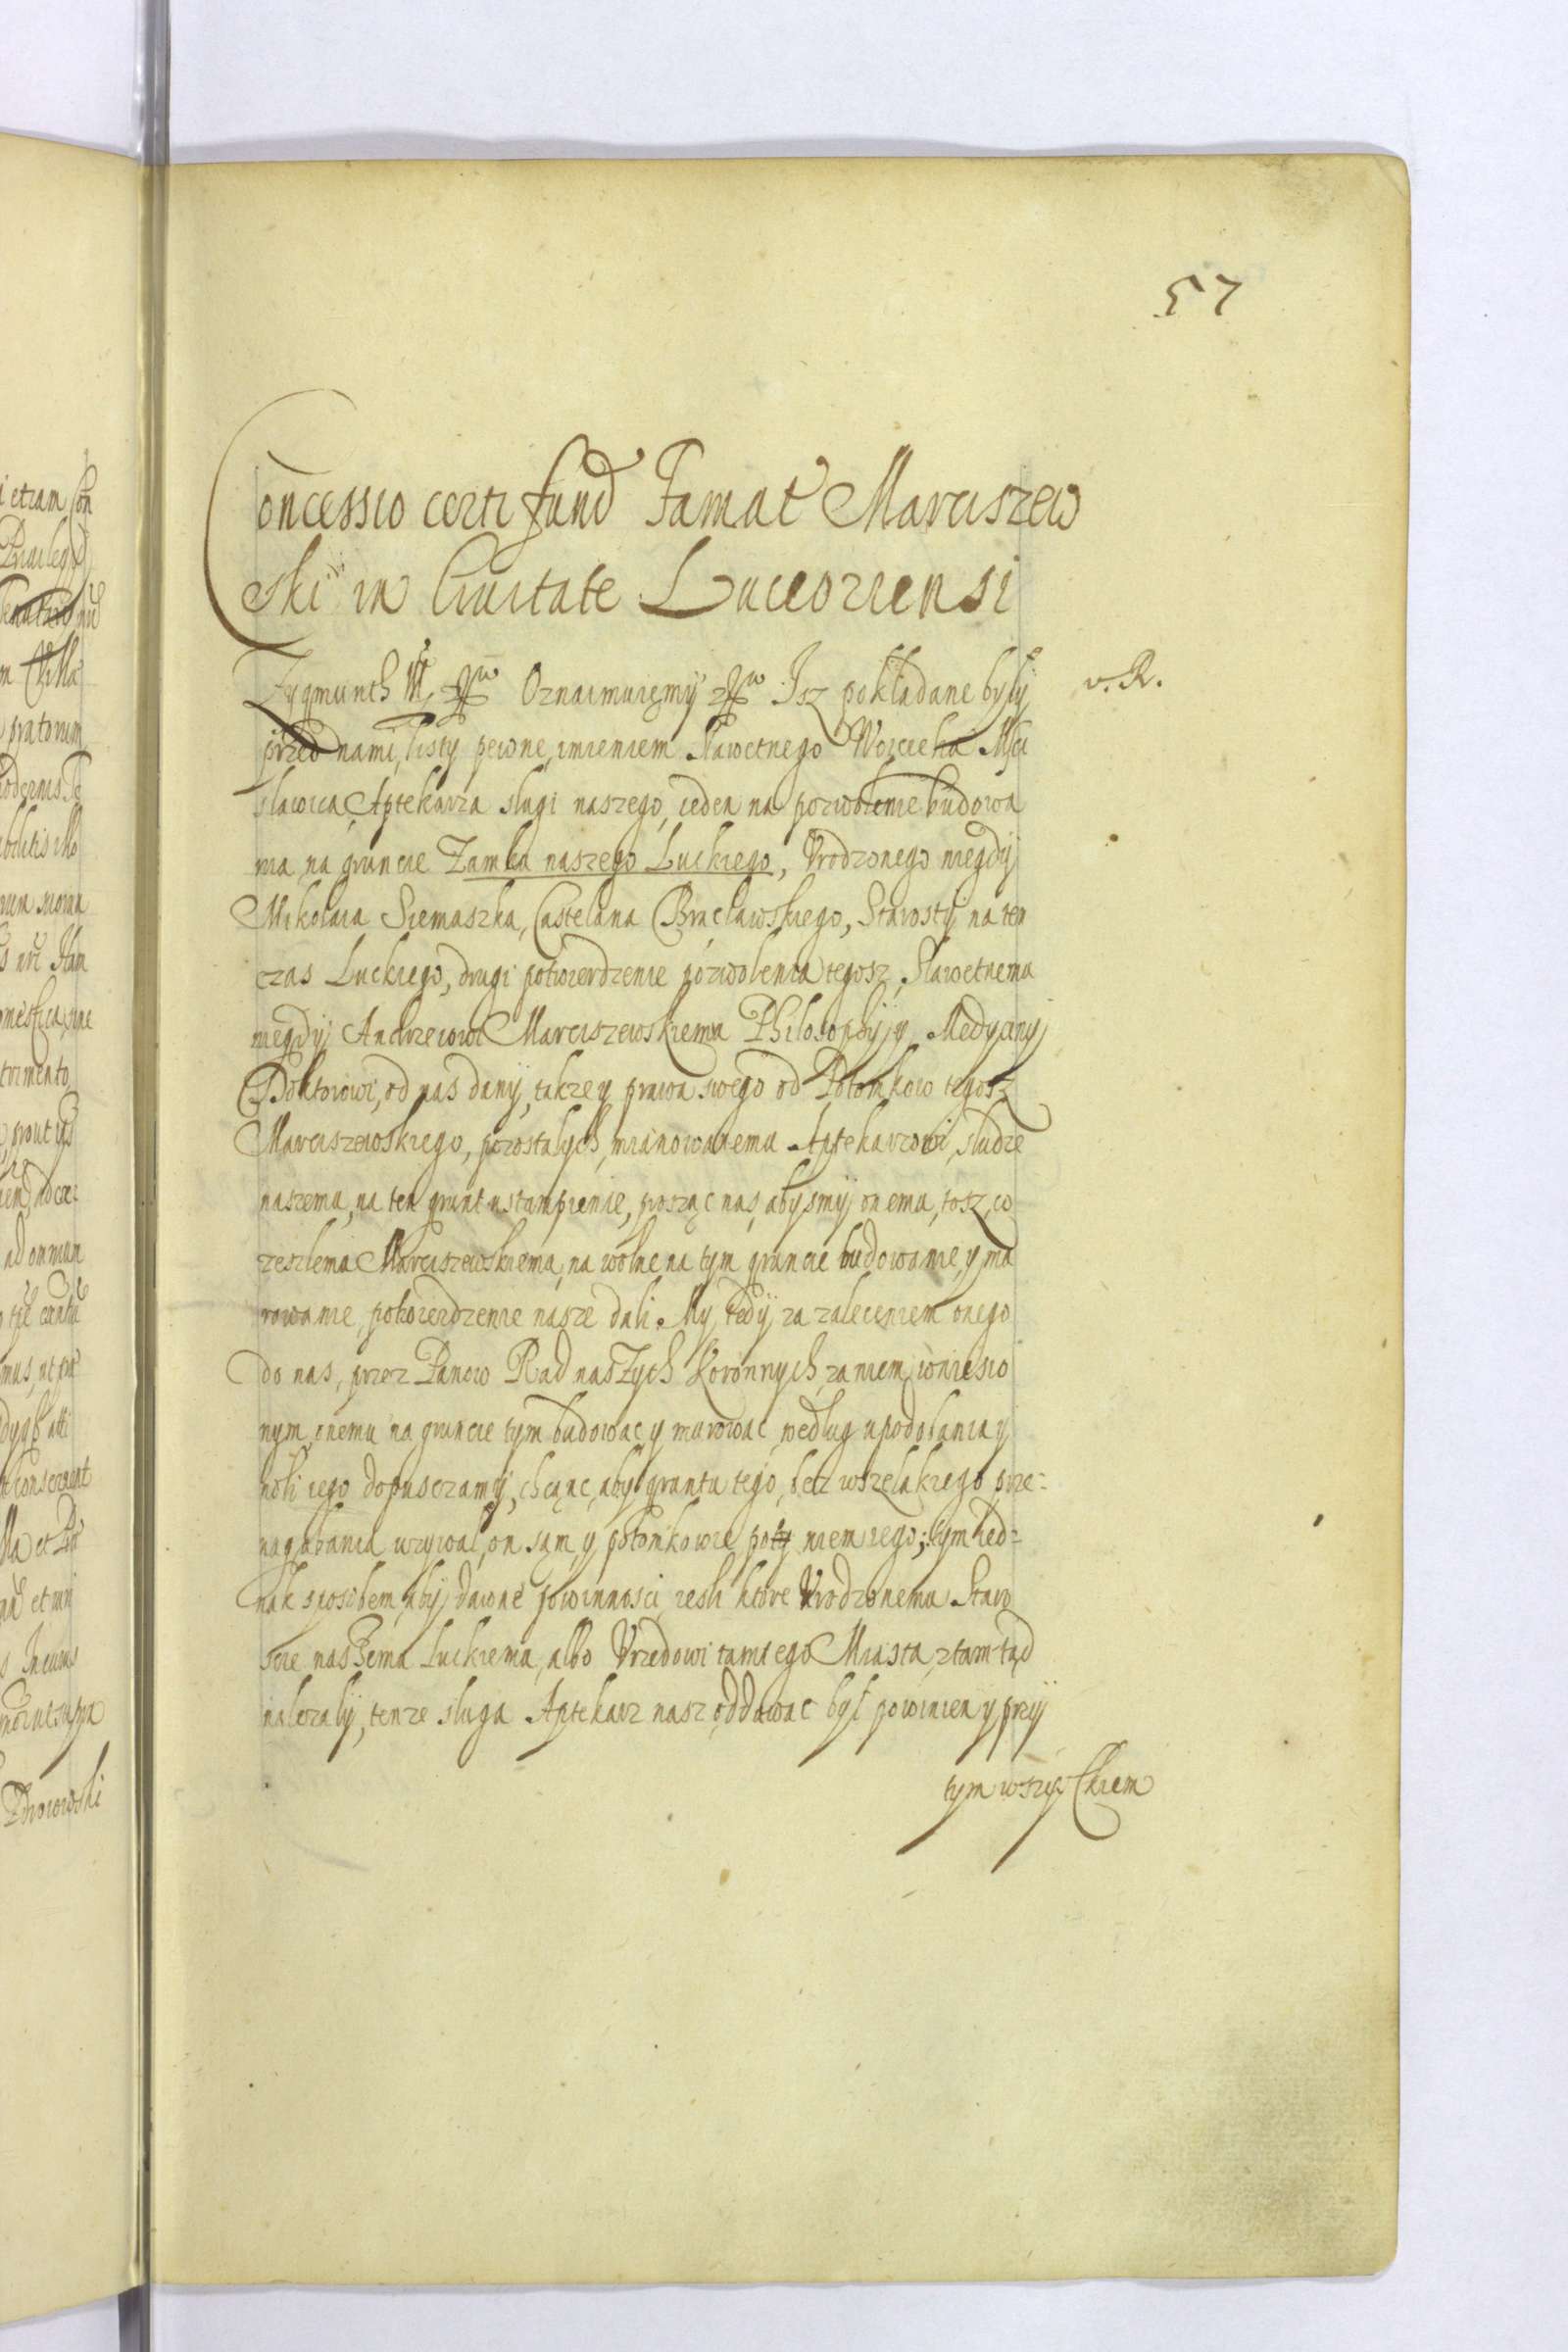 57
Concessio certi fund Famat Marciszew
ski in Ciuitate Luceoriensi
Zygmunth III, Oznaimuięmÿ Isz pokładane byłÿ
v. R.
przed nami, listy pewne, imieniem Sławetnego Woicieha Mści
sławica, Aptekarza sługi naszego, ieden na pozwolenie budowa
nia na gruncie Zamku naszego Luckiego, Vrodzonego niegdÿ
Mikołaia Siemaszka, Castelana Bracławskiego, Starostÿ na ten
czas Luckiego, drugi potwierdzenie pozwolenia tegosz, Sławetnemu
niegdÿ Andrzeiowi Marciszewskiemu Philosophÿ y Medycynÿ
Doktorowi, od nas danÿ, takze y prawa swego od Potomkow tegosz
Marciszewskiego, pozostałych, mianowanemu Aptekarzowi, słudze
naszemu, na ten grunt ustąmpienie, prosząc nas, abysmÿ onemu, tosz, co
zeszłemu Marciszewskiemu, na wolne na tym gruncie budowanie, y mu
rowanie, potwierdzenie nasze dali. My tedÿ za zaleceniem onego
do nas, przez Panow Rad naszych Koronnych, za niem wniesio
nym, onemu na gruncie tym budowac y murowac, według upodobania y
woli iego dopusczamÿ, chcąc, aby gruntu tego, bez wszelakiego prze-
nagabania uzywał, on sąm y potomkowie po niem iego; tym ied-
nak sposobem, abÿ dawne powinnosci, iesli ktore Vrodzonemu Staro
scie naszemu Luckiemu, albo Vrzedowi tamtego Miasta, ztamtąd
nalezałÿ, tenze sługa Aptekarz nasz oddawac był powinien y przÿ
tym wszyskiem